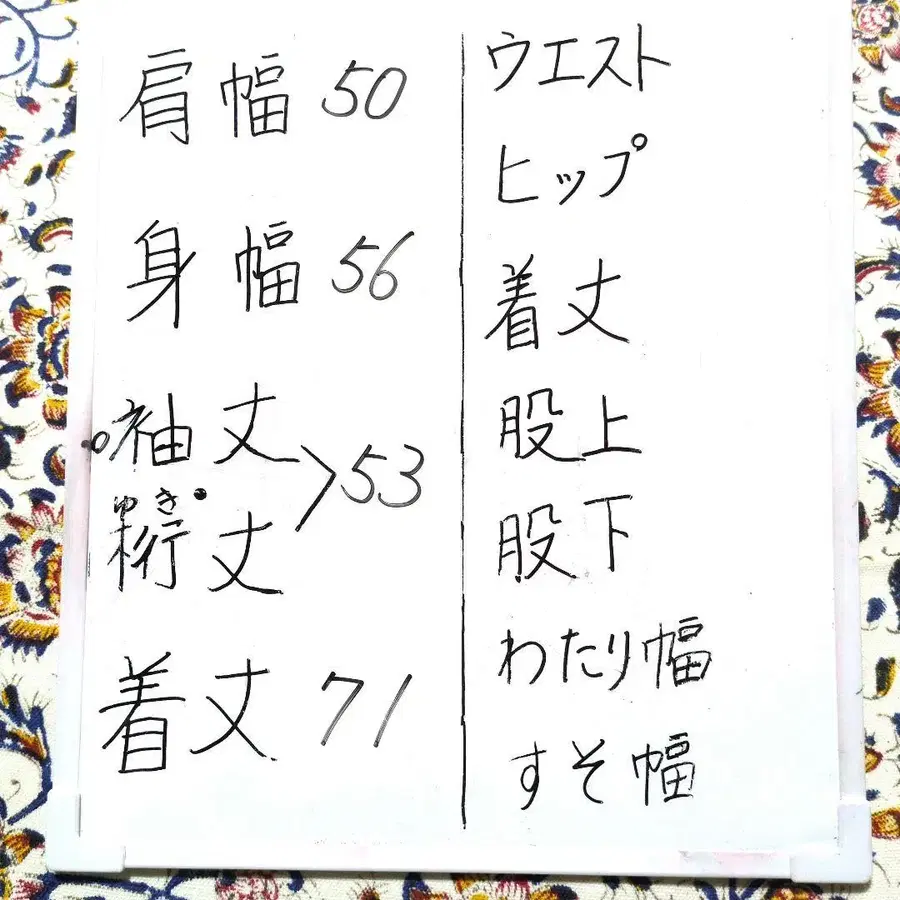 肩幅 50
身幅 56
袖丈
ゆき
裄丈
>53
着丈 71
ウエスト
ヒップ
着丈
股上
股下
わたり幅
すそ幅